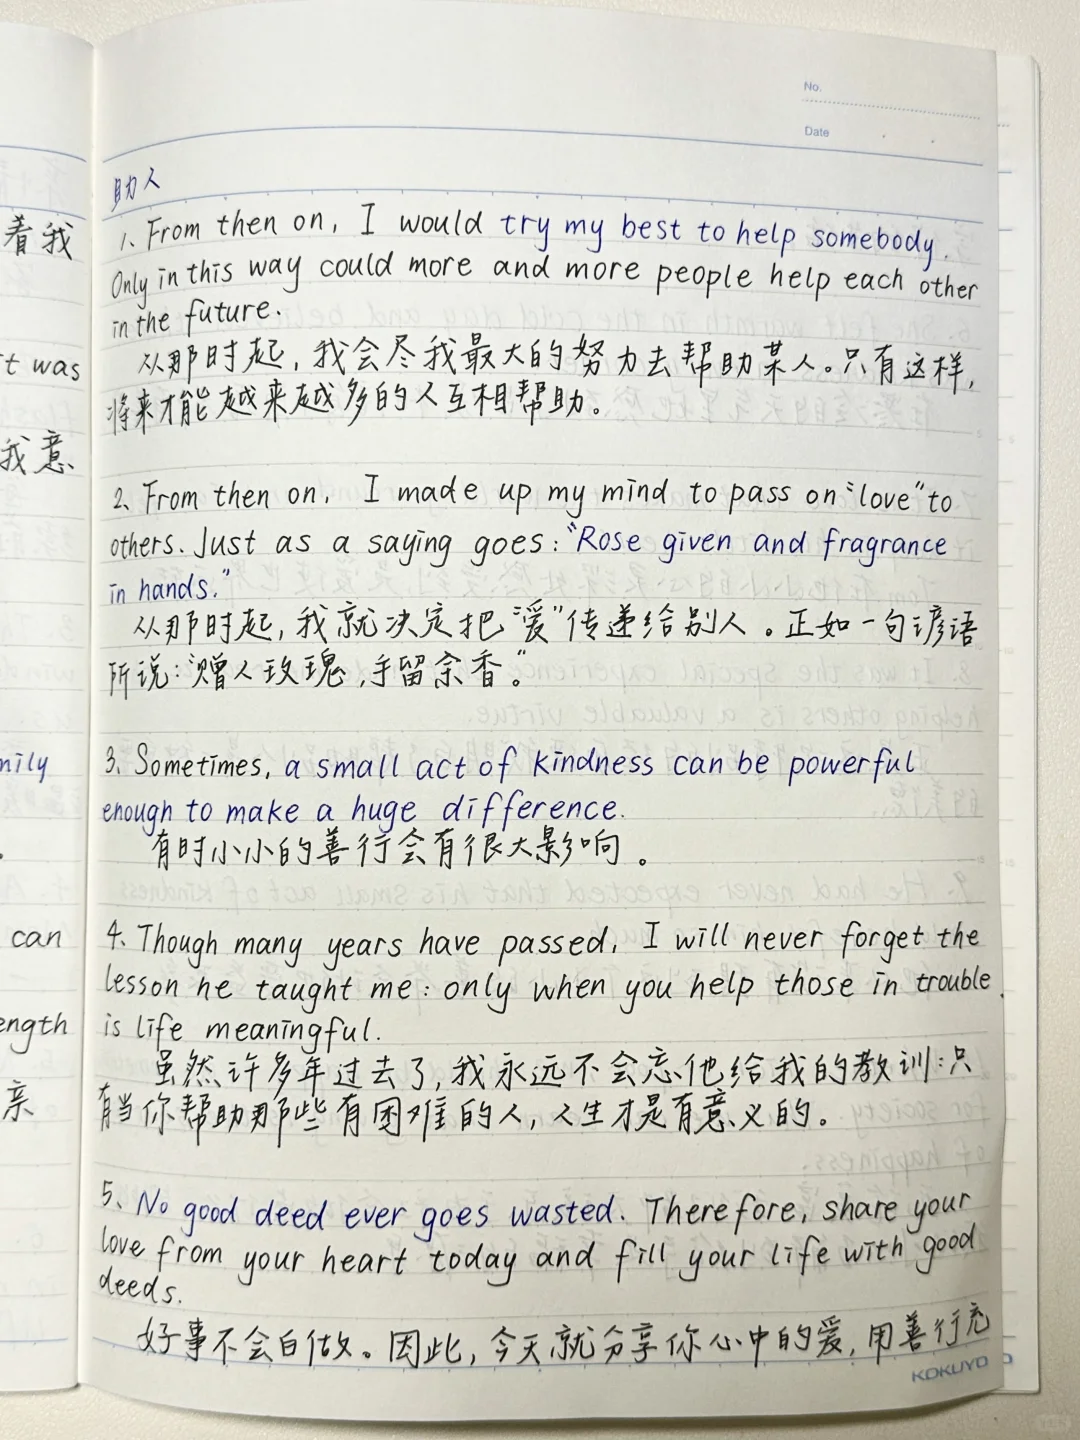 No.
Date
助人
1、From then on, I would try my best to help somebody.
Only in this way could more and more people help each other
in the future.
从那时起，我会尽我最大的努力去帮助某人。只有这样，
将来才能越来越多的人互相帮助。
2、From then on, I made up my mind to pass on "love" to
others. Just as a saying goes: "Rose given and fragrance
in hands."
从那时起，我就决定把"爱"传递给别人。正如一句谚语
所说："赠人玫瑰，手留余香。"
3、Sometimes, a small act of kindness can be powerful
enough to make a huge difference.
有时小小的善行会有很大影响。
4、Though many years have passed, I will never forget the
lesson he taught me: only when you help those in trouble
is life meaningful.
虽然许多年过去了，我永远不会忘他给我的教训：只
有当你帮助那些有困难的人，人生才是有意义的。
5、No good deed ever goes wasted. Therefore, share your
love from your heart today and fill your life with good
deeds.
好事不会白做。因此，今天就分享你心中的爱，用善行充
KOKUYO
着我
t was
我意
mily
can
ength
亲